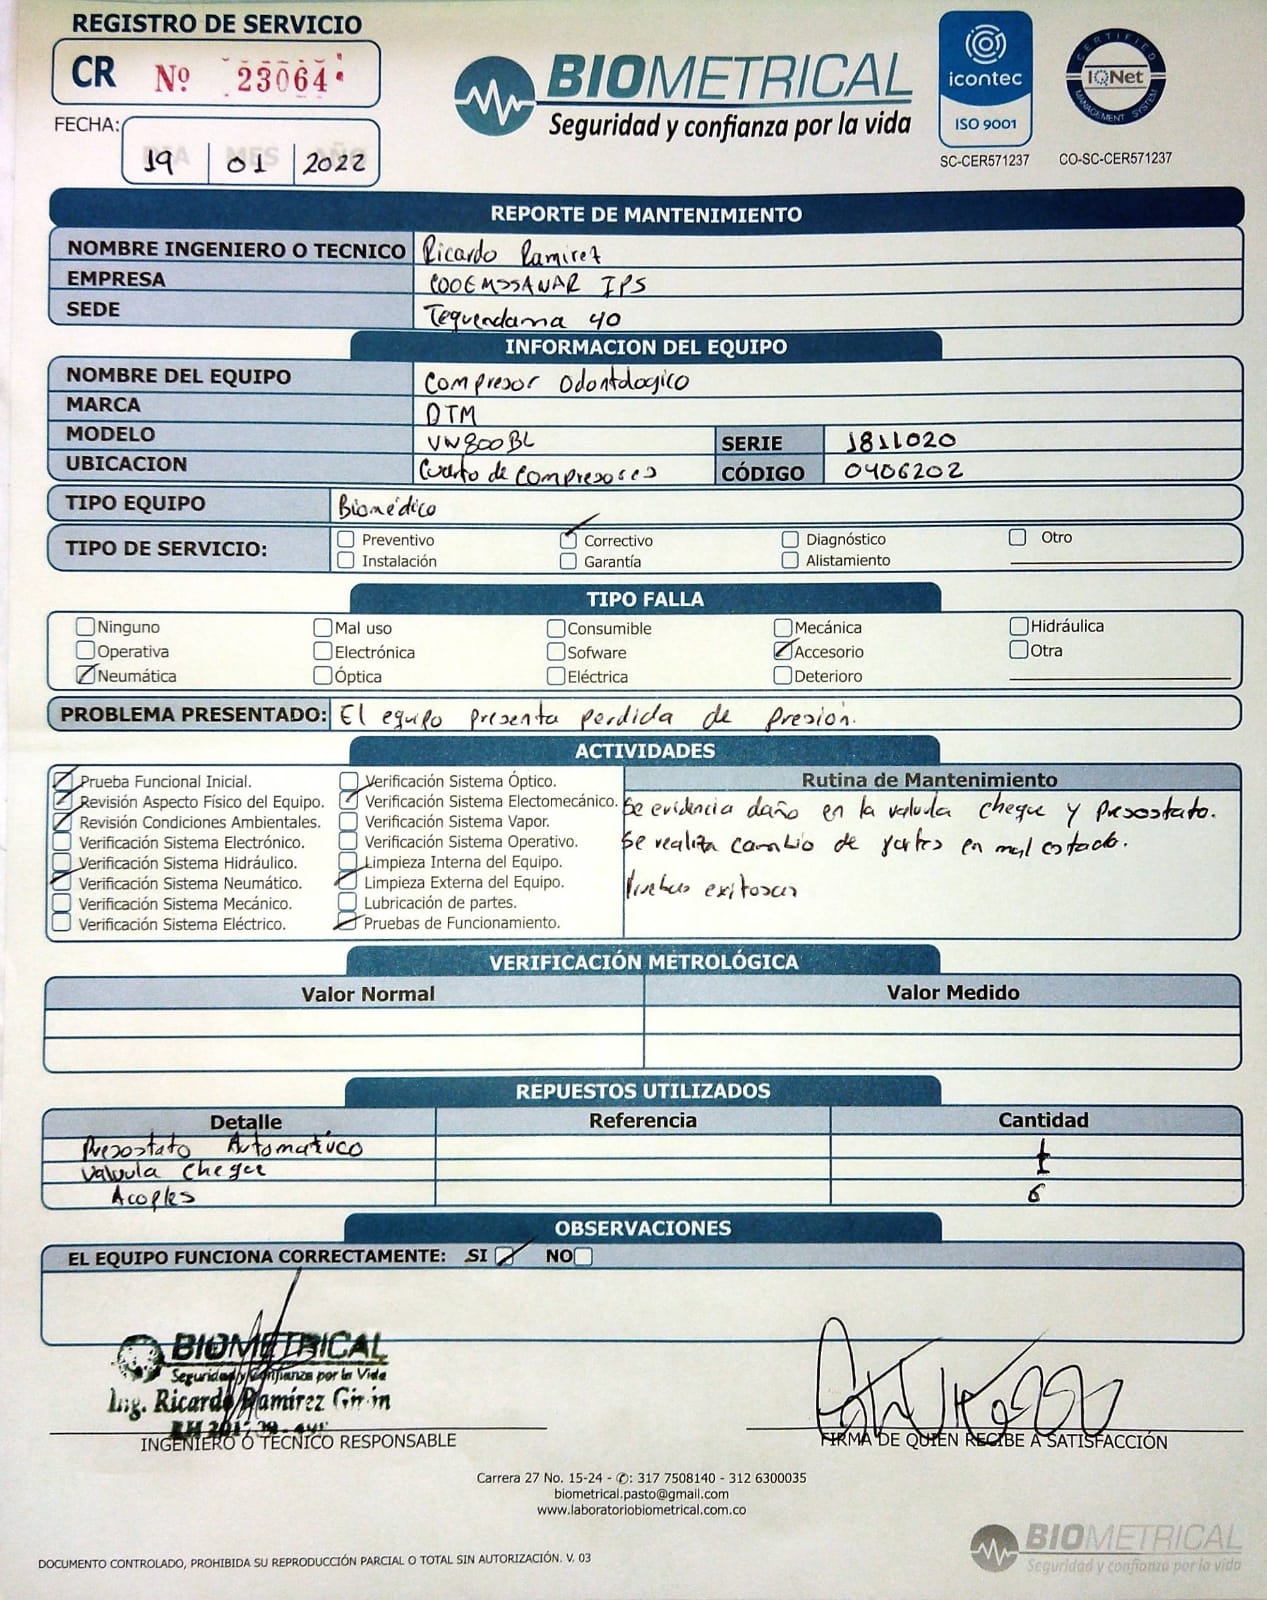 REGISTRO DE SERVICIO
CR Nº 23064
FECHA:
DIA MES AÑO
19 01 2022
BIOMETRICAL
Seguridad y confianza por la vida
icontec
ISO 9001
SC-CER571237
CERTIFIED
IQNet
MANAGEMENT SYSTEM
CO-SC-CER571237
REPORTE DE MANTENIMIENTO
NOMBRE INGENIERO O TECNICO Ricardo Ramirez
EMPRESA COOEMSSANAR IPS
SEDE Tequendama 40
INFORMACION DEL EQUIPO
NOMBRE DEL EQUIPO Compresor Odontologico
MARCA DTM
MODELO VW800BL SERIE 1811020
UBICACION Cuarto de compresores CÓDIGO 0406202
TIPO EQUIPO Biomédico
TIPO DE SERVICIO:
Preventivo Correctivo Diagnóstico Otro
Instalación Garantía Alistamiento
TIPO FALLA
Ninguno Mal uso Consumible Mecánica Hidráulica
Operativa Electrónica Sofware Accesorio Otra
Neumática Óptica Eléctrica Deterioro
PROBLEMA PRESENTADO: El equipo presenta perdida de presión.
ACTIVIDADES
Prueba Funcional Inicial.
Revisión Aspecto Físico del Equipo.
Revisión Condiciones Ambientales.
Verificación Sistema Electrónico.
Verificación Sistema Hidráulico.
Verificación Sistema Neumático.
Verificación Sistema Mecánico.
Verificación Sistema Eléctrico.
Verificación Sistema Óptico.
Verificación Sistema Electomecánico.
Verificación Sistema Vapor.
Verificación Sistema Operativo.
Limpieza Interna del Equipo.
Limpieza Externa del Equipo.
Lubricación de partes.
Pruebas de Funcionamiento.
Rutina de Mantenimiento
Se evidencia daño en la valvula cheque y presostato.
Se realiza cambio de partes en mal estado.
Pruebas exitosas
VERIFICACIÓN METROLÓGICA
Valor Normal Valor Medido
REPUESTOS UTILIZADOS
Detalle Referencia Cantidad
Presostato Automatico 1
Valvula cheque 1
Acoples 6
OBSERVACIONES
EL EQUIPO FUNCIONA CORRECTAMENTE: SI NO
BIOMETRICAL
Seguridad y Confianza por la Vida
Ing. Ricardo Ramírez Girón
INGENIERO O TECNICO RESPONSABLE
FIRMA DE QUIEN RECIBE A SATISFACCIÓN
Carrera 27 No. 15-24 - ✆: 317 7508140 - 312 6300035
biometrical.pasto@gmail.com
www.laboratoriobiometrical.com.co
BIOMETRICAL
Seguridad y confianza por la vida
DOCUMENTO CONTROLADO, PROHIBIDA SU REPRODUCCIÓN PARCIAL O TOTAL SIN AUTORIZACIÓN. V. 03